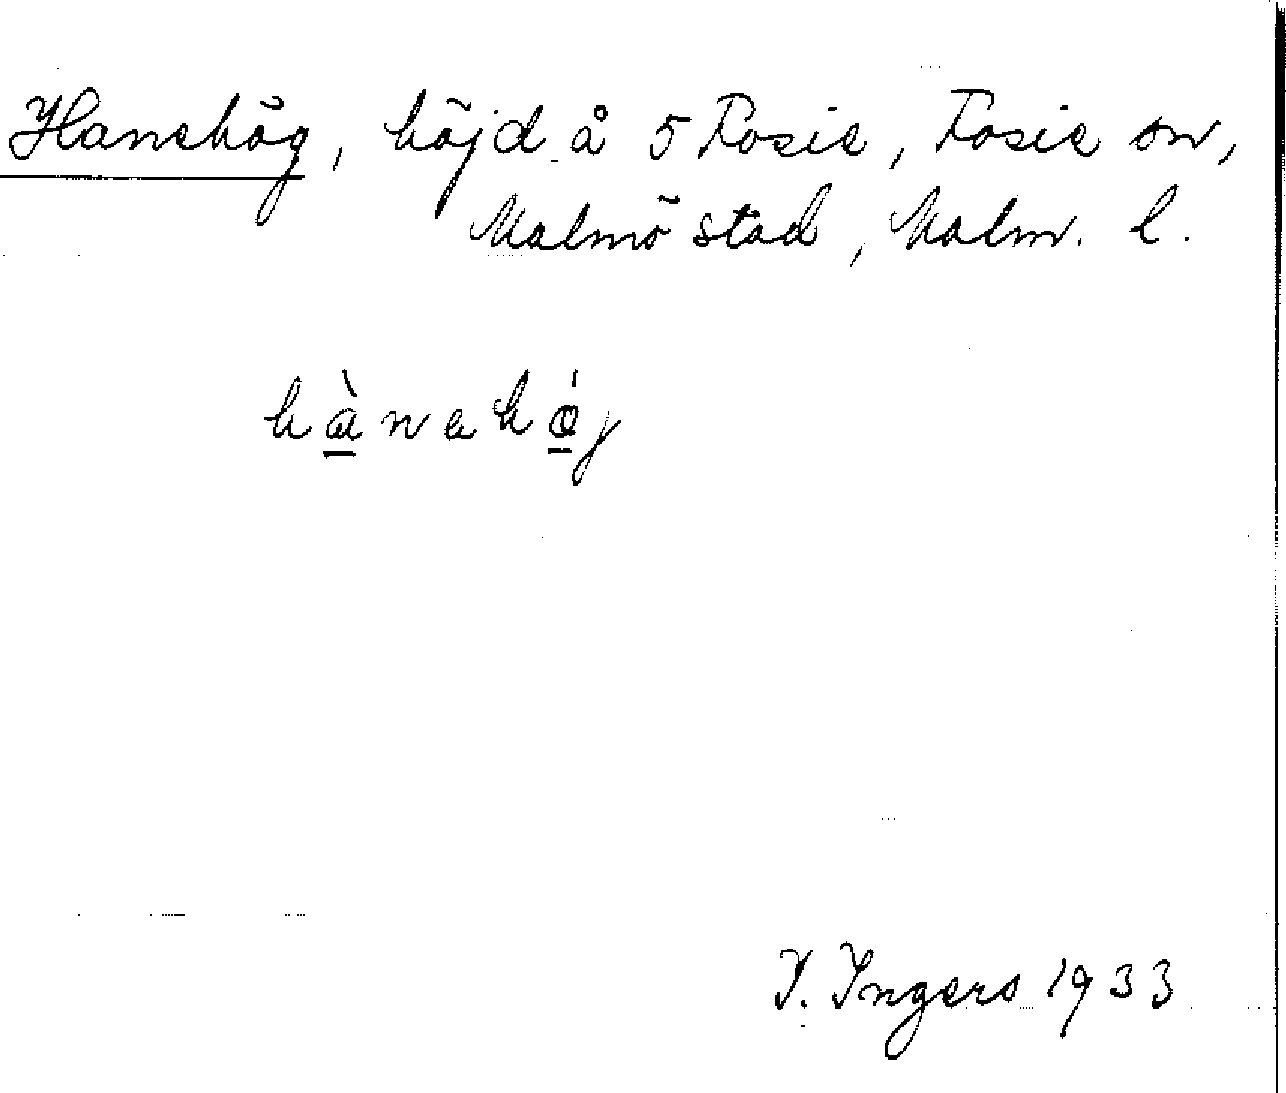 Hanehög, höjd å 5 Fosie, Fosie sn,
Malmö stad, Malm. l.
hànəhǿj
I. Ingers 1933